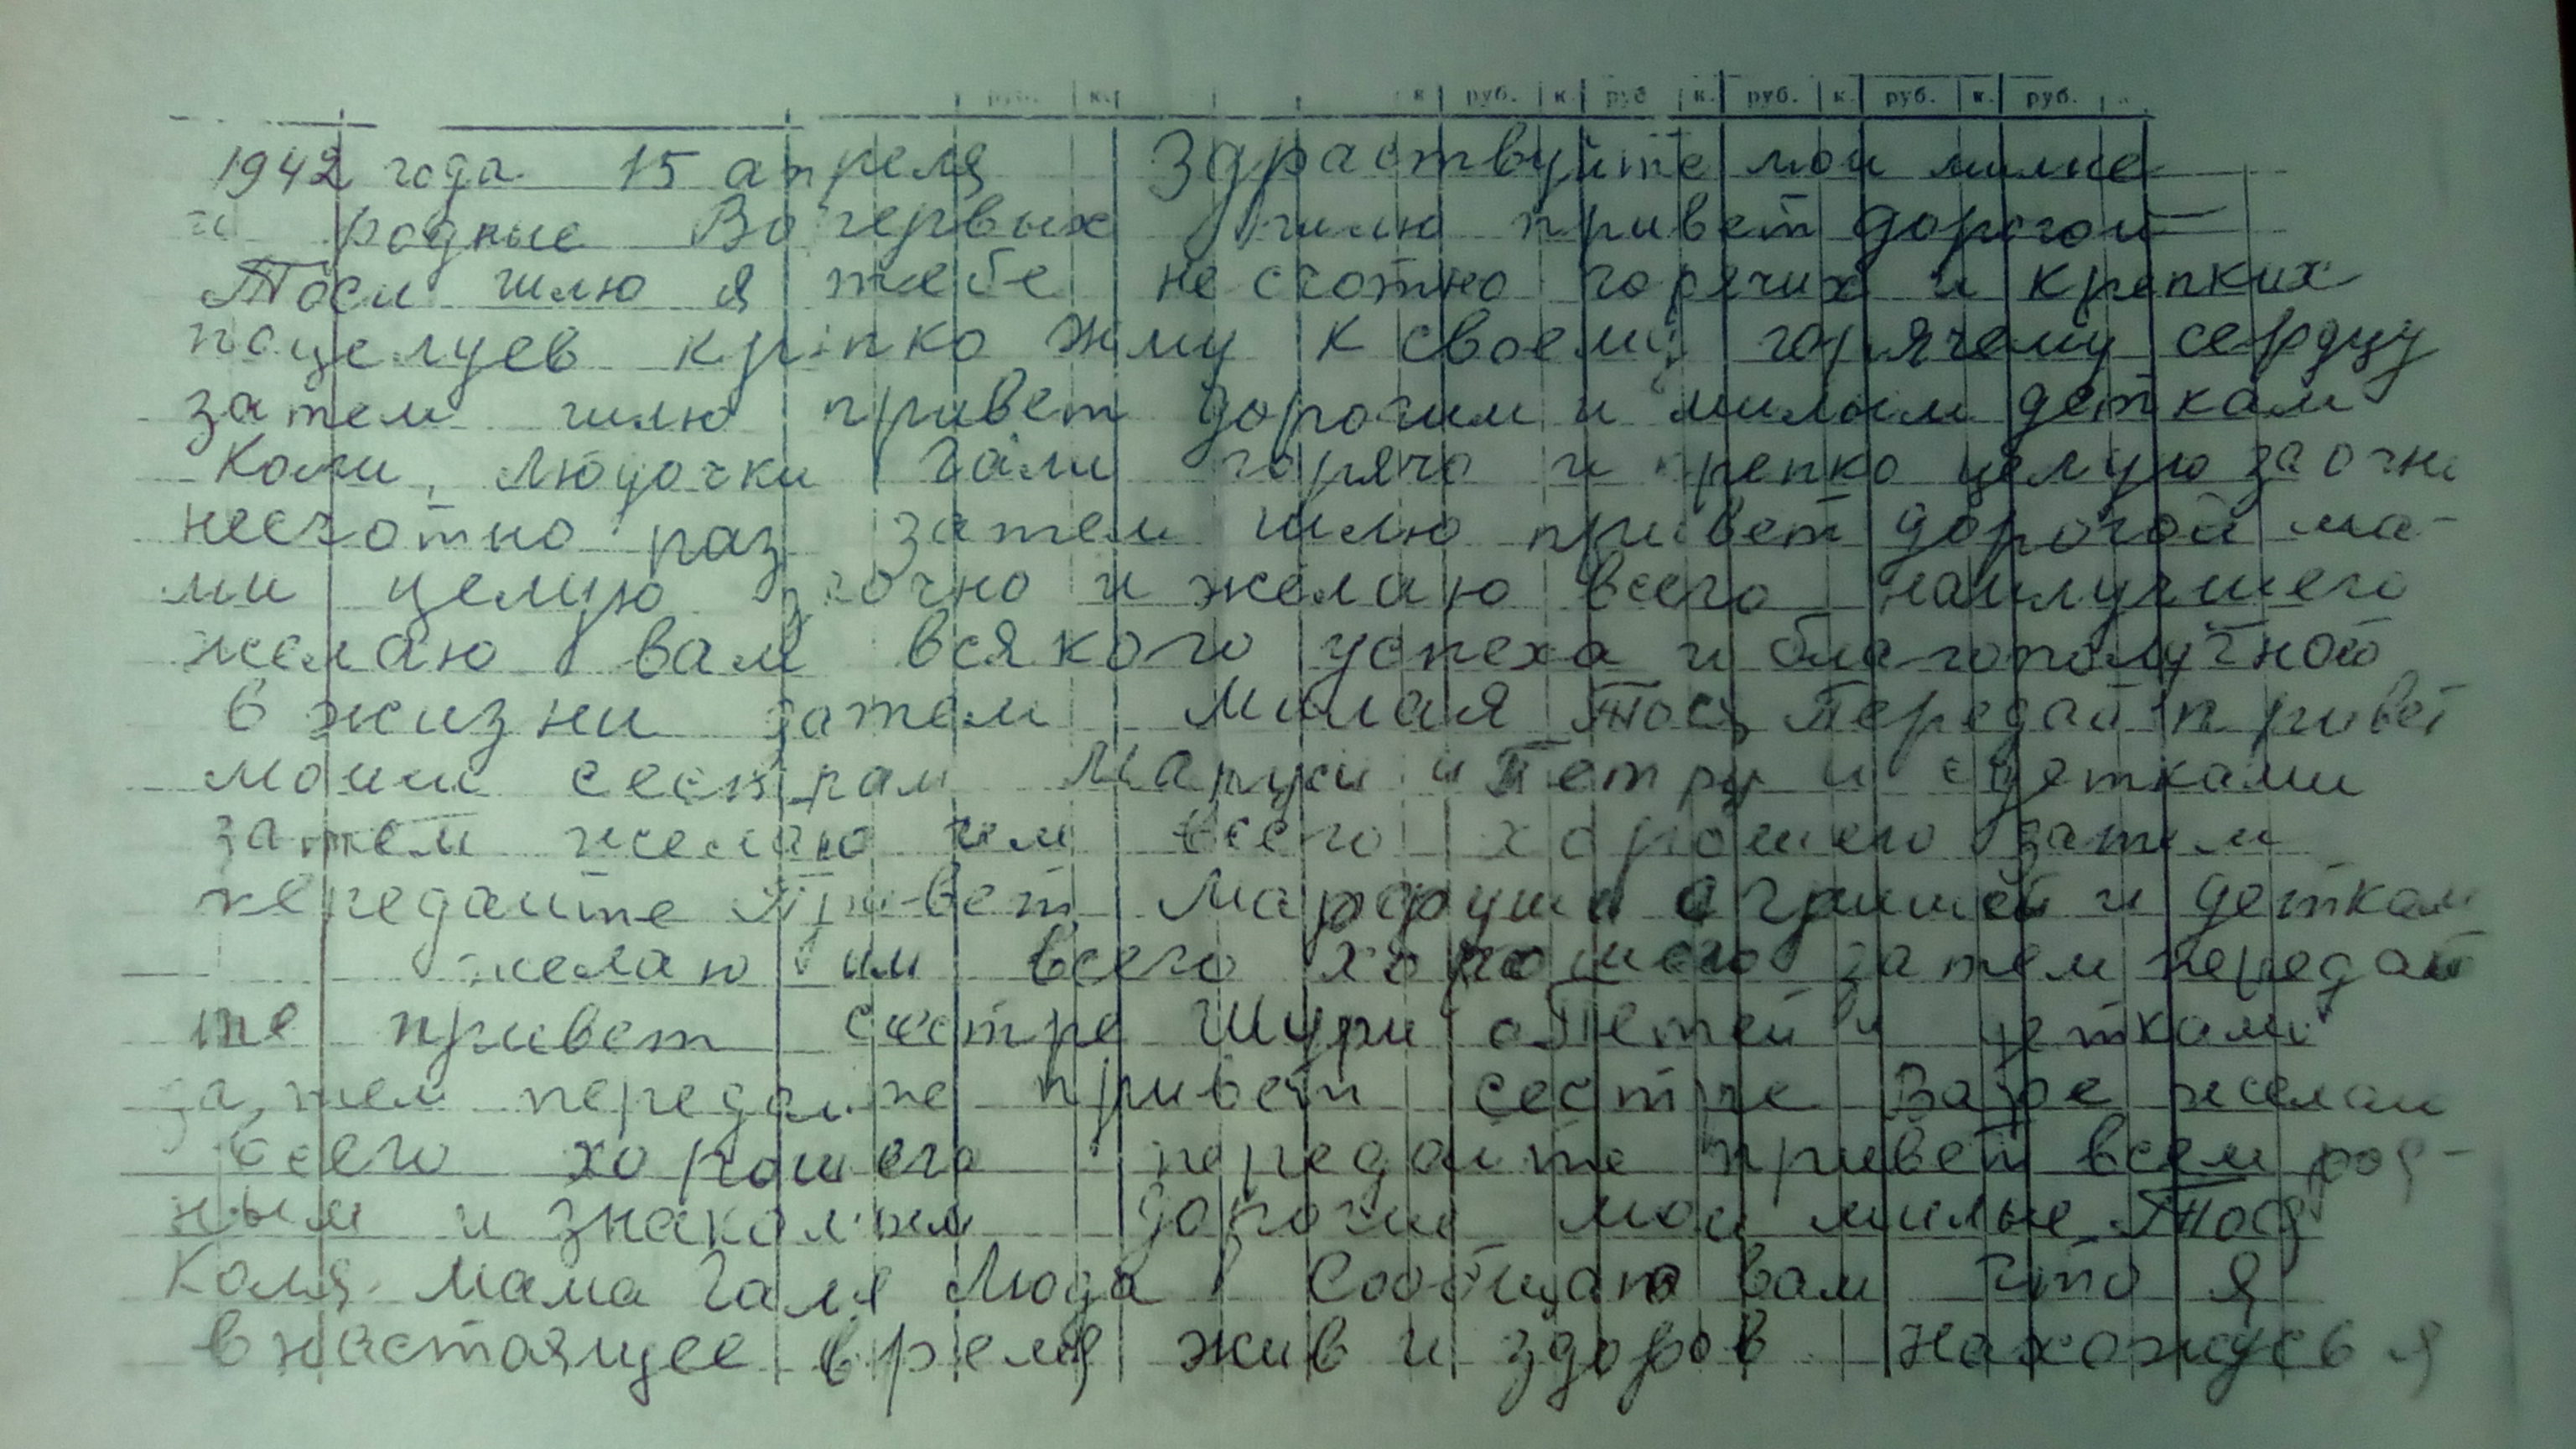 руб. к. к руб. к. руб к. руб. к. руб. к. руб.
1942 года 15 апреля Здраствуйте мои милые
и родные Во первых шлю привет дорогой
Тоси шлю я тебе не счотно горячих и крепких
поцелуев крепко жму к своему горячему сердцу
затем шлю привет дорогим и милым деткам
Коли, Людочки Гали горячо и крепко целую заочно
несчотно раз затем шлю привет дорогой ма-
ми целую заочно и желаю всего наилучшего
желаю вам всякого успеха и благополучной
в жизни затем милая Тося передай привет
моим сестрам Маруси и Петру и с детками
затем желаю им всего хорошего затем
передайте привет Марфуши с Гришей и деткам
желаю им всего хорошего затем передай
те привет сестре Шури с Петей и детками
затем передайте привет сестре Варе желаю
всего хорошего передайте привет всем род-
ным и знакомым дорогие мои милые Тося
Коля мама Галя Люда Сообщаю вам что я
в настоящее время жив и здоров нахожусь я